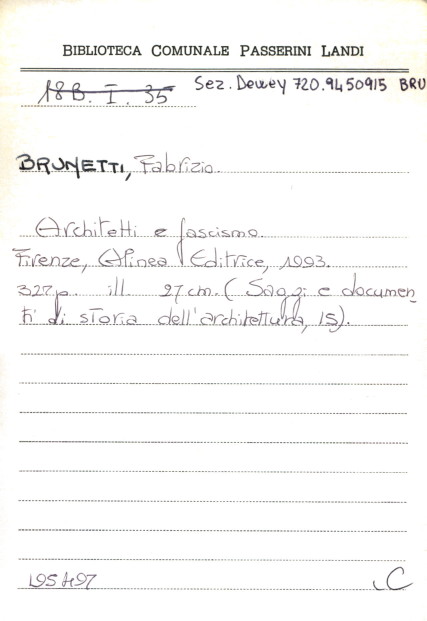 BIBLIOTECA COMUNALE PASSERINI LANDI
18B. I. 35 Sez. Dewey 720.9450915 BRU
BRUNETTI, Fabrizio.
Architetti e fascismo.
Firenze, Alinea Editrice, 1993.
327p. ill. 27 cm. ( Saggi e documen
ti di storia dell'architettura, 15).
195497 C